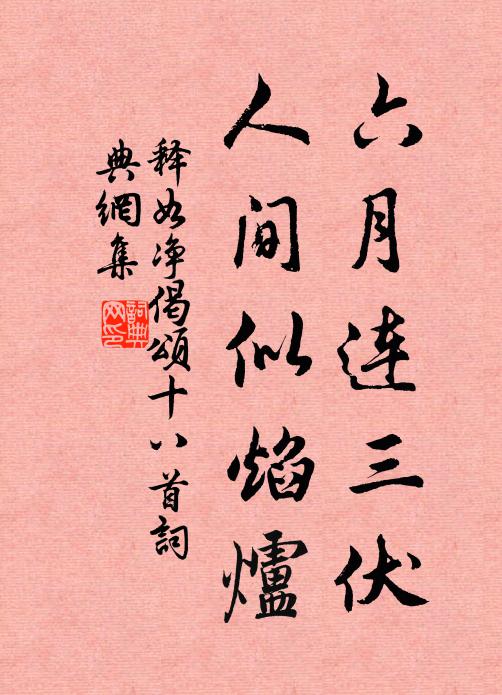 六月连三伏
人间似焰爐
释如净偈頌十八首詞
典網集
詞典网印